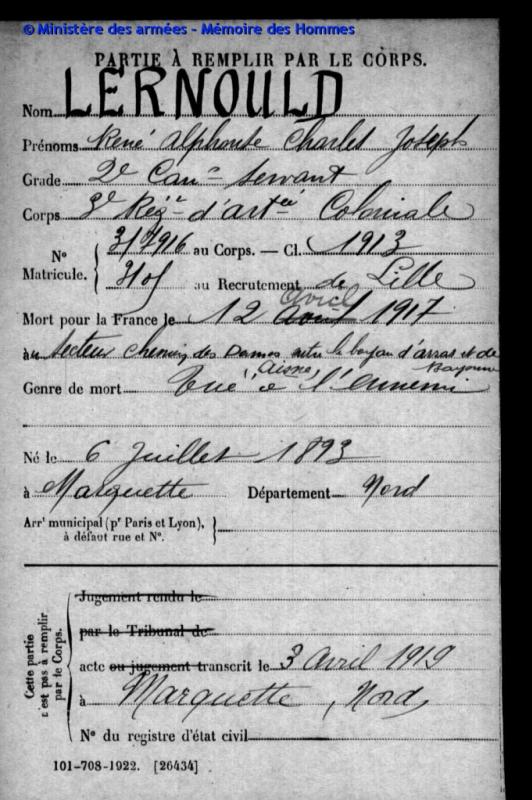 © Ministère des armées - Mémoire des Hommes
PARTIE À REMPLIR PAR LE CORPS.
Nom LERNOULD
Prénoms René Alphonse Charles Joseph
Grade 2e Canr servant
Corps 3e Régt d'artie Coloniale
N° Matricule. { 3/7916 au Corps. — Cl. 1913
3101 au Recrutement de Lille
Mort pour la France le 12 Août Avril 1917
au secteur Chemin des Dames entre le boyau d'arras et de Bayonne
(Aisne)
Genre de mort Tué à l'ennemi
Né le 6 Juillet 1893
à Marquette Département Nord
Arrt municipal (pr Paris et Lyon),
à défaut rue et N°.
Cette partie n'est pas à remplir par le Corps.
Jugement rendu le
par le Tribunal de
acte ou jugement transcrit le 3 Avril 1919
à Marquette, Nord
N° du registre d'état civil
101-708-1922. [26434]